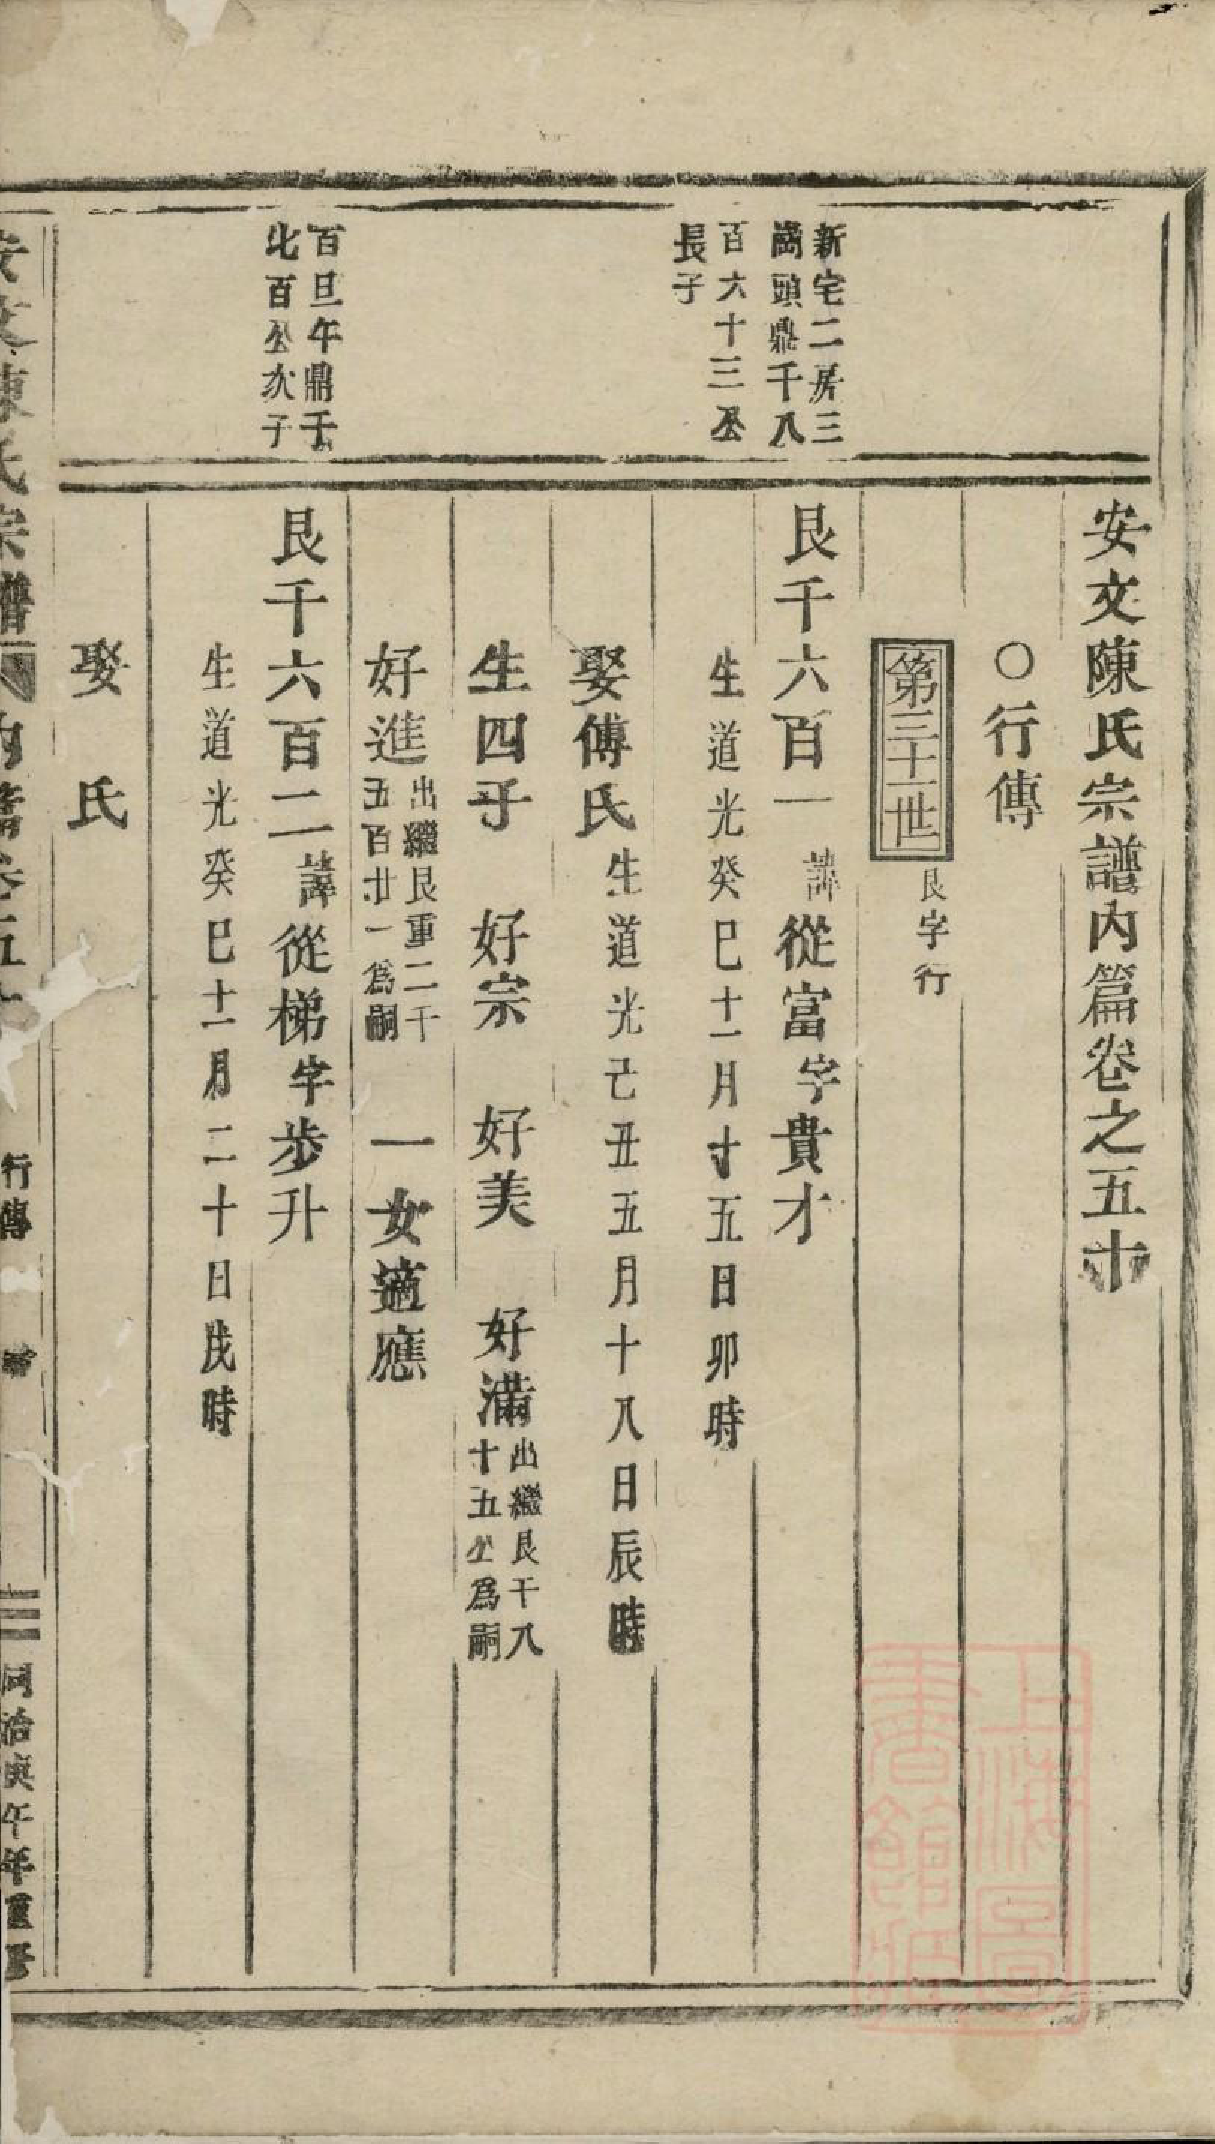 安文陳氏宗譜內篇卷之五十
〇行傳
第三十一世
艮字行
新宅二房三
崗頭鼎千八
百六十三公
長子
艮千六百一諱從富字貴才
生道光癸巳十一月十五日卯時
娶傅氏生道光己丑五月十八日辰時
生四子 好宗 好美 好滿出繼艮千八
十五公為嗣
好進出繼艮重二千
五百廿一為嗣 一女適應
百旦午鼎千
北百公次子
艮千六百二諱從梯字步升
生道光癸巳十一月二十日戌時
娶 氏
安文陳氏宗譜 內篇卷五十
行傳
同治庚午年重修
上海圖
書館藏